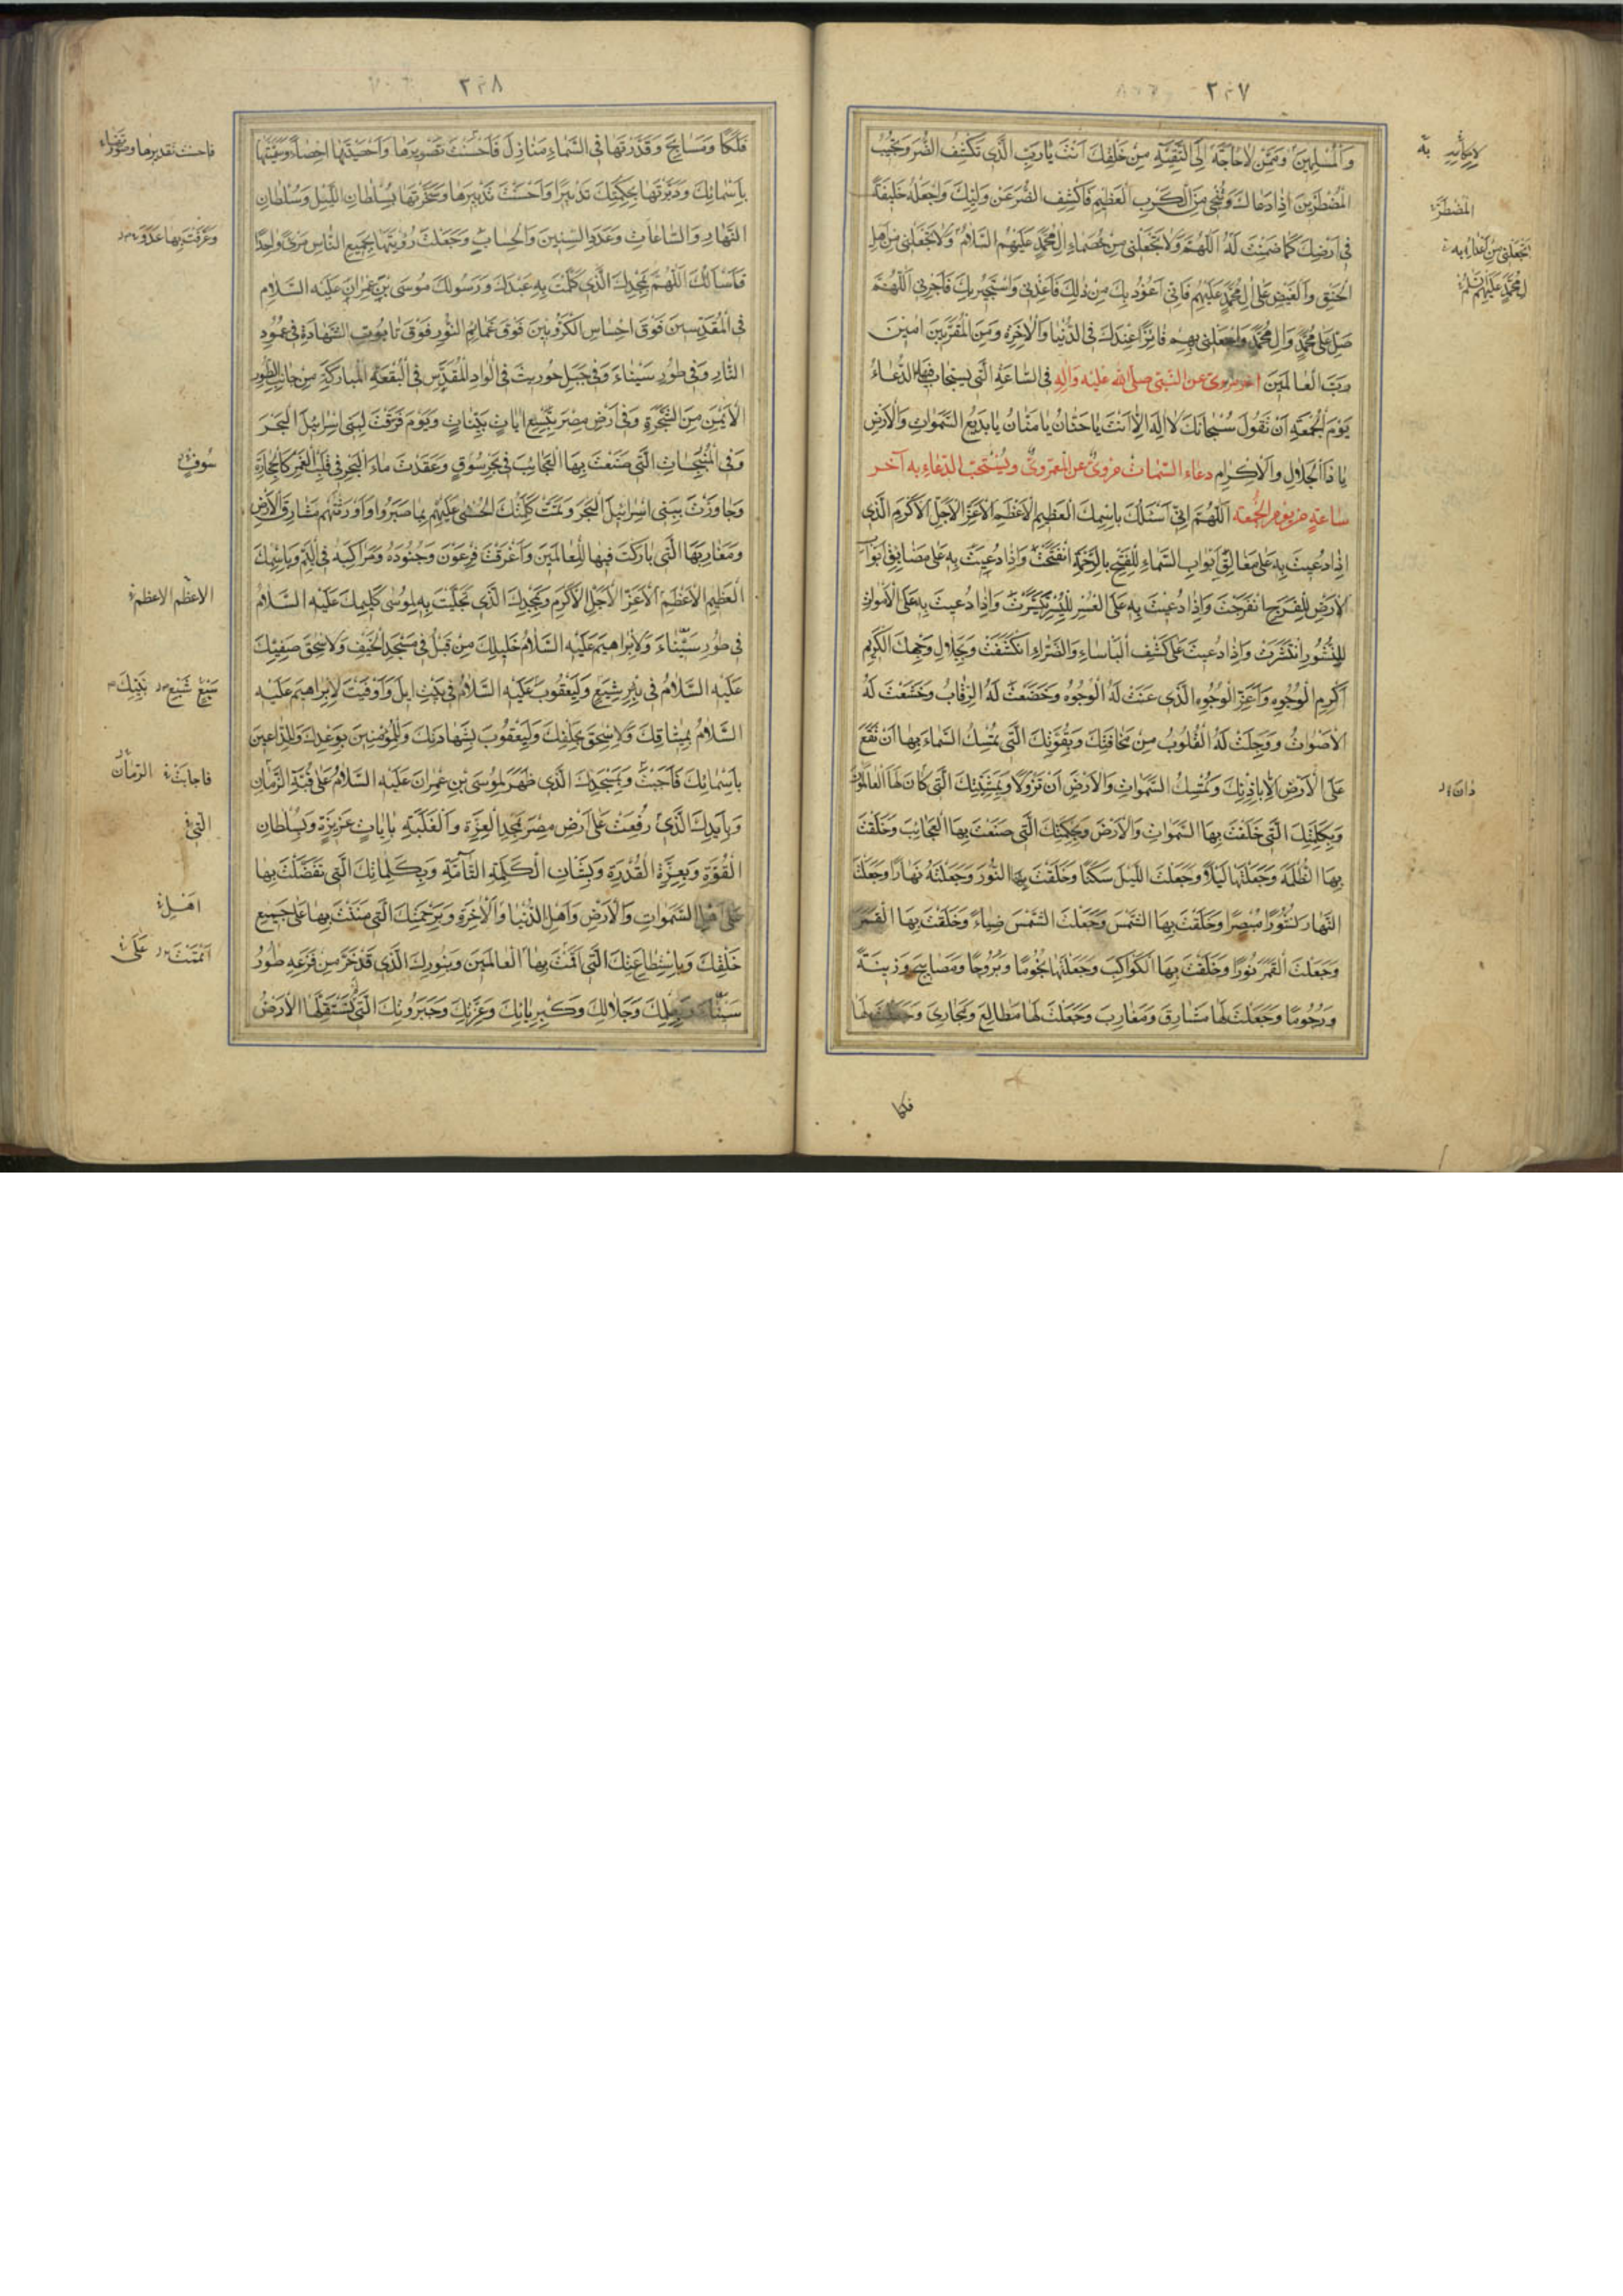 ٢٣٧
وَالْمُسْلِمِينَ وَمِمَّنْ لَاحَاجَةَ إِلَى التَّقِيَّةِ مِنْ خَلْقِكَ اَنْتَ يَارَبِّ الَّذِى تَكْشِفُ الضُّرَّ وَتُجِيبُ
الْمُضْطَرِّينَ اِذَا دَعَاكَ وَتُنْجِى مِنَ الْكَرْبِ الْعَظِيمِ فَاكْشِفِ الضُّرَّ عَنْ وَلِيِّكَ وَاجْعَلْهُ خَلِيفَةً
فِى اَرْضِكَ كَمَا ضَمِنْتَ لَهُ اَللّٰهُمَّ وَلَا تَجْعَلْنِى مِنْ خُصَمَاءِ اٰلِ مُحَمَّدٍ عَلَيْهِمُ السَّلَامُ وَلَا تَجْعَلْنِى مِنْ اَهْلِ
الْحَنَقِ وَالْغَيْظِ عَلَى اٰلِ مُحَمَّدٍ عَلَيْهِمْ فَاِنِّى اَعُوذُ بِكَ مِنْ ذٰلِكَ فَاَعِذْنِى وَاَسْتَجِيرُ بِكَ فَاَجِرْنِى اَللّٰهُمَّ
صَلِّ عَلَى مُحَمَّدٍ وَاٰلِ مُحَمَّدٍ وَاجْعَلْنِى بِهِمْ فَائِزًا عِنْدَكَ فِى الدُّنْيَا وَالْاٰخِرَةِ وَمِنَ الْمُقَرَّبِينَ اٰمِينَ
رَبَّ الْعَالَمِينَ اخر مروى عن النبى صلى الله عليه واٰله فى الساعة التى يستجاب فيها الدعاء
يَوْمَ الْجُمُعَةِ اَنْ تَقُولَ سُبْحَانَكَ لَا اِلٰهَ اِلَّا اَنْتَ يَا حَنَّانُ يَا مَنَّانُ يَا بَدِيعَ السَّمٰوَاتِ وَالْاَرْضِ
يَا ذَا الْجَلَالِ وَالْاِكْرَامِ دعاء السمات مروى عن العمروى ويستحب الدعاء به آخر
ساعة من يوم الجمعة اَللّٰهُمَّ اِنِّى اَسْئَلُكَ بِاسْمِكَ الْعَظِيمِ الْاَعْظَمِ الْاَعَزِّ الْاَجَلِّ الْاَكْرَمِ الَّذِى
اِذَا دُعِيتَ بِهِ عَلَى مَغَالِقِ اَبْوَابِ السَّمَاءِ لِلْفَتْحِ بِالرَّحْمَةِ انْفَتَحَتْ وَاِذَا دُعِيتَ بِهِ عَلَى مَضَايِقِ اَبْوَابِ
الْاَرْضِ لِلْفَرَجِ انْفَرَجَتْ وَاِذَا دُعِيتَ بِهِ عَلَى الْعُسْرِ لِلْيُسْرِ تَيَسَّرَتْ وَاِذَا دُعِيتَ بِهِ عَلَى الْاَمْوَاتِ
لِلنُّشُورِ انْتَشَرَتْ وَاِذَا دُعِيتَ عَلَى كَشْفِ الْبَأْسَاءِ وَالضَّرَّاءِ انْكَشَفَتْ وَبِجَلَالِ وَجْهِكَ الْكَرِيمِ
اَكْرَمِ الْوُجُوهِ وَاَعَزِّ الْوُجُوهِ الَّذِى عَنَتْ لَهُ الْوُجُوهُ وَخَضَعَتْ لَهُ الرِّقَابُ وَخَشَعَتْ لَهُ
الْاَصْوَاتُ وَوَجِلَتْ لَهُ الْقُلُوبُ مِنْ مَخَافَتِكَ وَبِقُوَّتِكَ الَّتِى تُمْسِكُ السَّمَاءَ بِهَا اَنْ تَقَعَ
عَلَى الْاَرْضِ اِلَّا بِاِذْنِكَ وَتُمْسِكُ السَّمٰوَاتِ وَالْاَرْضَ اَنْ تَزُولَا وَبِمَشِيَّتِكَ الَّتِى كَانَ لَهَا الْعَالَمُونَ
وَبِكَلِمَتِكَ الَّتِى خَلَقْتَ بِهَا السَّمٰوَاتِ وَالْاَرْضَ وَبِحِكْمَتِكَ الَّتِى صَنَعْتَ بِهَا الْعَجَائِبَ وَخَلَقْتَ
بِهَا الظُّلْمَةَ وَجَعَلْتَهَا لَيْلًا وَجَعَلْتَ اللَّيْلَ سَكَنًا وَخَلَقْتَ بِهَا النُّورَ وَجَعَلْتَهُ نَهَارًا وَجَعَلْتَ
النَّهَارَ نُشُورًا مُبْصِرًا وَخَلَقْتَ بِهَا الشَّمْسَ وَجَعَلْتَ الشَّمْسَ ضِيَاءً وَخَلَقْتَ بِهَا الْقَمَرَ
وَجَعَلْتَ الْقَمَرَ نُورًا وَخَلَقْتَ بِهَا الْكَوَاكِبَ وَجَعَلْتَهَا نُجُومًا وَبُرُوجًا وَمَصَابِيحَ وَزِينَةً
وَرُجُومًا وَجَعَلْتَ لَهَا مَشَارِقَ وَمَغَارِبَ وَجَعَلْتَ لَهَا مَطَالِعَ وَمَجَارِىَ وَجَعَلْتَ لَهَا
المضطر
٢٣٨
فَلَكًا وَمَسَابِحَ وَقَدَّرْتَهَا فِى السَّمَاءِ مَنَازِلَ فَاَحْسَنْتَ تَصْوِيرَهَا وَاَحْصَيْتَهَا اِحْصَاءً وَسَمَّيْتَهَا
بِاَسْمَائِكَ وَدَبَّرْتَهَا بِحِكْمَتِكَ تَدْبِيرًا وَاَحْسَنْتَ تَدْبِيرَهَا وَسَخَّرْتَهَا بِسُلْطَانِ اللَّيْلِ وَسُلْطَانِ
النَّهَارِ وَالسَّاعَاتِ وَعَدَدَ السِّنِينَ وَالْحِسَابِ وَجَعَلْتَ رُؤْيَتَهَا لِجَمِيعِ النَّاسِ مَرْئً وَاحِدًا
فَاَسْأَلُكَ اَللّٰهُمَّ بِمَجْدِكَ الَّذِى كَلَّمْتَ بِهِ عَبْدَكَ وَرَسُولَكَ مُوسَى بْنَ عِمْرَانَ عَلَيْهِ السَّلَامُ
فِى الْمُقَدَّسِينَ فَوْقَ اِحْسَاسِ الْكَرُّوبِينَ فَوْقَ غَمَائِمِ النُّورِ فَوْقَ تَابُوتِ الشَّهَادَةِ فِى عَمُودِ
النَّارِ وَفِى طُورِ سَيْنَاءَ وَفِى جَبَلِ حُورِيثَ فِى الْوَادِ الْمُقَدَّسِ فِى الْبُقْعَةِ الْمُبَارَكَةِ مِنْ جَانِبِ الطُّورِ
الْاَيْمَنِ مِنَ الشَّجَرَةِ وَفِى اَرْضِ مِصْرَ بِتِسْعِ اٰيَاتٍ بَيِّنَاتٍ وَيَوْمَ فَرَقْتَ لِبَنِى اِسْرَائِيلَ الْبَحْرَ
وَفِى الْمُنْبَجِسَاتِ الَّتِى صَنَعْتَ بِهَا الْعَجَائِبَ فِى بَحْرِ سُوفٍ وَعَقَدْتَ مَاءَ الْبَحْرِ فِى قَلْبِ الْغَمْرِ كَالْحِجَارَةِ
وَجَاوَزْتَ بِبَنِى اِسْرَائِيلَ الْبَحْرَ وَتَمَّتْ كَلِمَتُكَ الْحُسْنَى عَلَيْهِمْ بِمَا صَبَرُوا وَاَوْرَثْتَهُمْ مَشَارِقَ الْاَرْضِ
وَمَغَارِبَهَا الَّتِى بَارَكْتَ فِيهَا لِلْعَالَمِينَ وَاَغْرَقْتَ فِرْعَوْنَ وَجُنُودَهُ وَمَرَاكِبَهُ فِى الْيَمِّ وَبِاسْمِكَ
الْعَظِيمِ الْاَعْظَمِ الْاَعَزِّ الْاَجَلِّ الْاَكْرَمِ وَبِمَجْدِكَ الَّذِى تَجَلَّيْتَ بِهِ لِمُوسٰى كَلِيمِكَ عَلَيْهِ السَّلَامُ
فِى طُورِ سَيْنَاءَ وَلِاِبْرَاهِيمَ عَلَيْهِ السَّلَامُ خَلِيلِكَ مِنْ قَبْلُ فِى مَسْجِدِ الْخَيْفِ وَلِاِسْحٰقَ صَفِيِّكَ
عَلَيْهِ السَّلَامُ فِى بِئْرِ شِيَعٍ وَلِيَعْقُوبَ عَلَيْهِ السَّلَامُ فِى بَيْتِ اِيلَ وَاَوْفَيْتَ لِاِبْرَاهِيمَ عَلَيْهِ
السَّلَامُ بِمِيثَاقِكَ وَلِاِسْحٰقَ بِحَلْفِكَ وَلِيَعْقُوبَ بِشَهَادَتِكَ وَلِلْمُؤْمِنِينَ بِوَعْدِكَ وَلِلدَّاعِينَ
بِاَسْمَائِكَ فَاَجَبْتَ وَبِمَجْدِكَ الَّذِى ظَهَرَ لِمُوسَى بْنِ عِمْرَانَ عَلَيْهِ السَّلَامُ عَلَى قُبَّةِ الزَّمَانِ
وَبِاَيْدِكَ الَّذِى رُفِعَتْ عَلَى اَرْضِ مِصْرَ بِمَجْدِ الْعِزَّةِ وَالْغَلَبَةِ بِاٰيَاتٍ عَزِيزَةٍ وَبِسُلْطَانِ
الْقُوَّةِ وَبِعِزَّةِ الْقُدْرَةِ وَبِشَأْنِ الْكَلِمَةِ التَّامَّةِ وَبِكَلِمَاتِكَ الَّتِى تَفَضَّلْتَ بِهَا
عَلَى اَهْلِ السَّمٰوَاتِ وَالْاَرْضِ وَاَهْلِ الدُّنْيَا وَالْاٰخِرَةِ وَبِرَحْمَتِكَ الَّتِى مَنَنْتَ بِهَا عَلَى جَمِيعِ
خَلْقِكَ وَبِاسْتِطَاعَتِكَ الَّتِى اَقَمْتَ بِهَا الْعَالَمِينَ وَبِنُورِكَ الَّذِى قَدْ خَرَّ مِنْ فَزَعِهِ طُورُ
سَيْنَاءَ وَجَلَالِكَ وَكِبْرِيَائِكَ وَعِزَّتِكَ وَجَبَرُوتِكَ الَّتِى لَمْ تَسْتَقِلَّهَا الْاَرْضُ
سوف
الاعظم الاعظم
التى
اهل